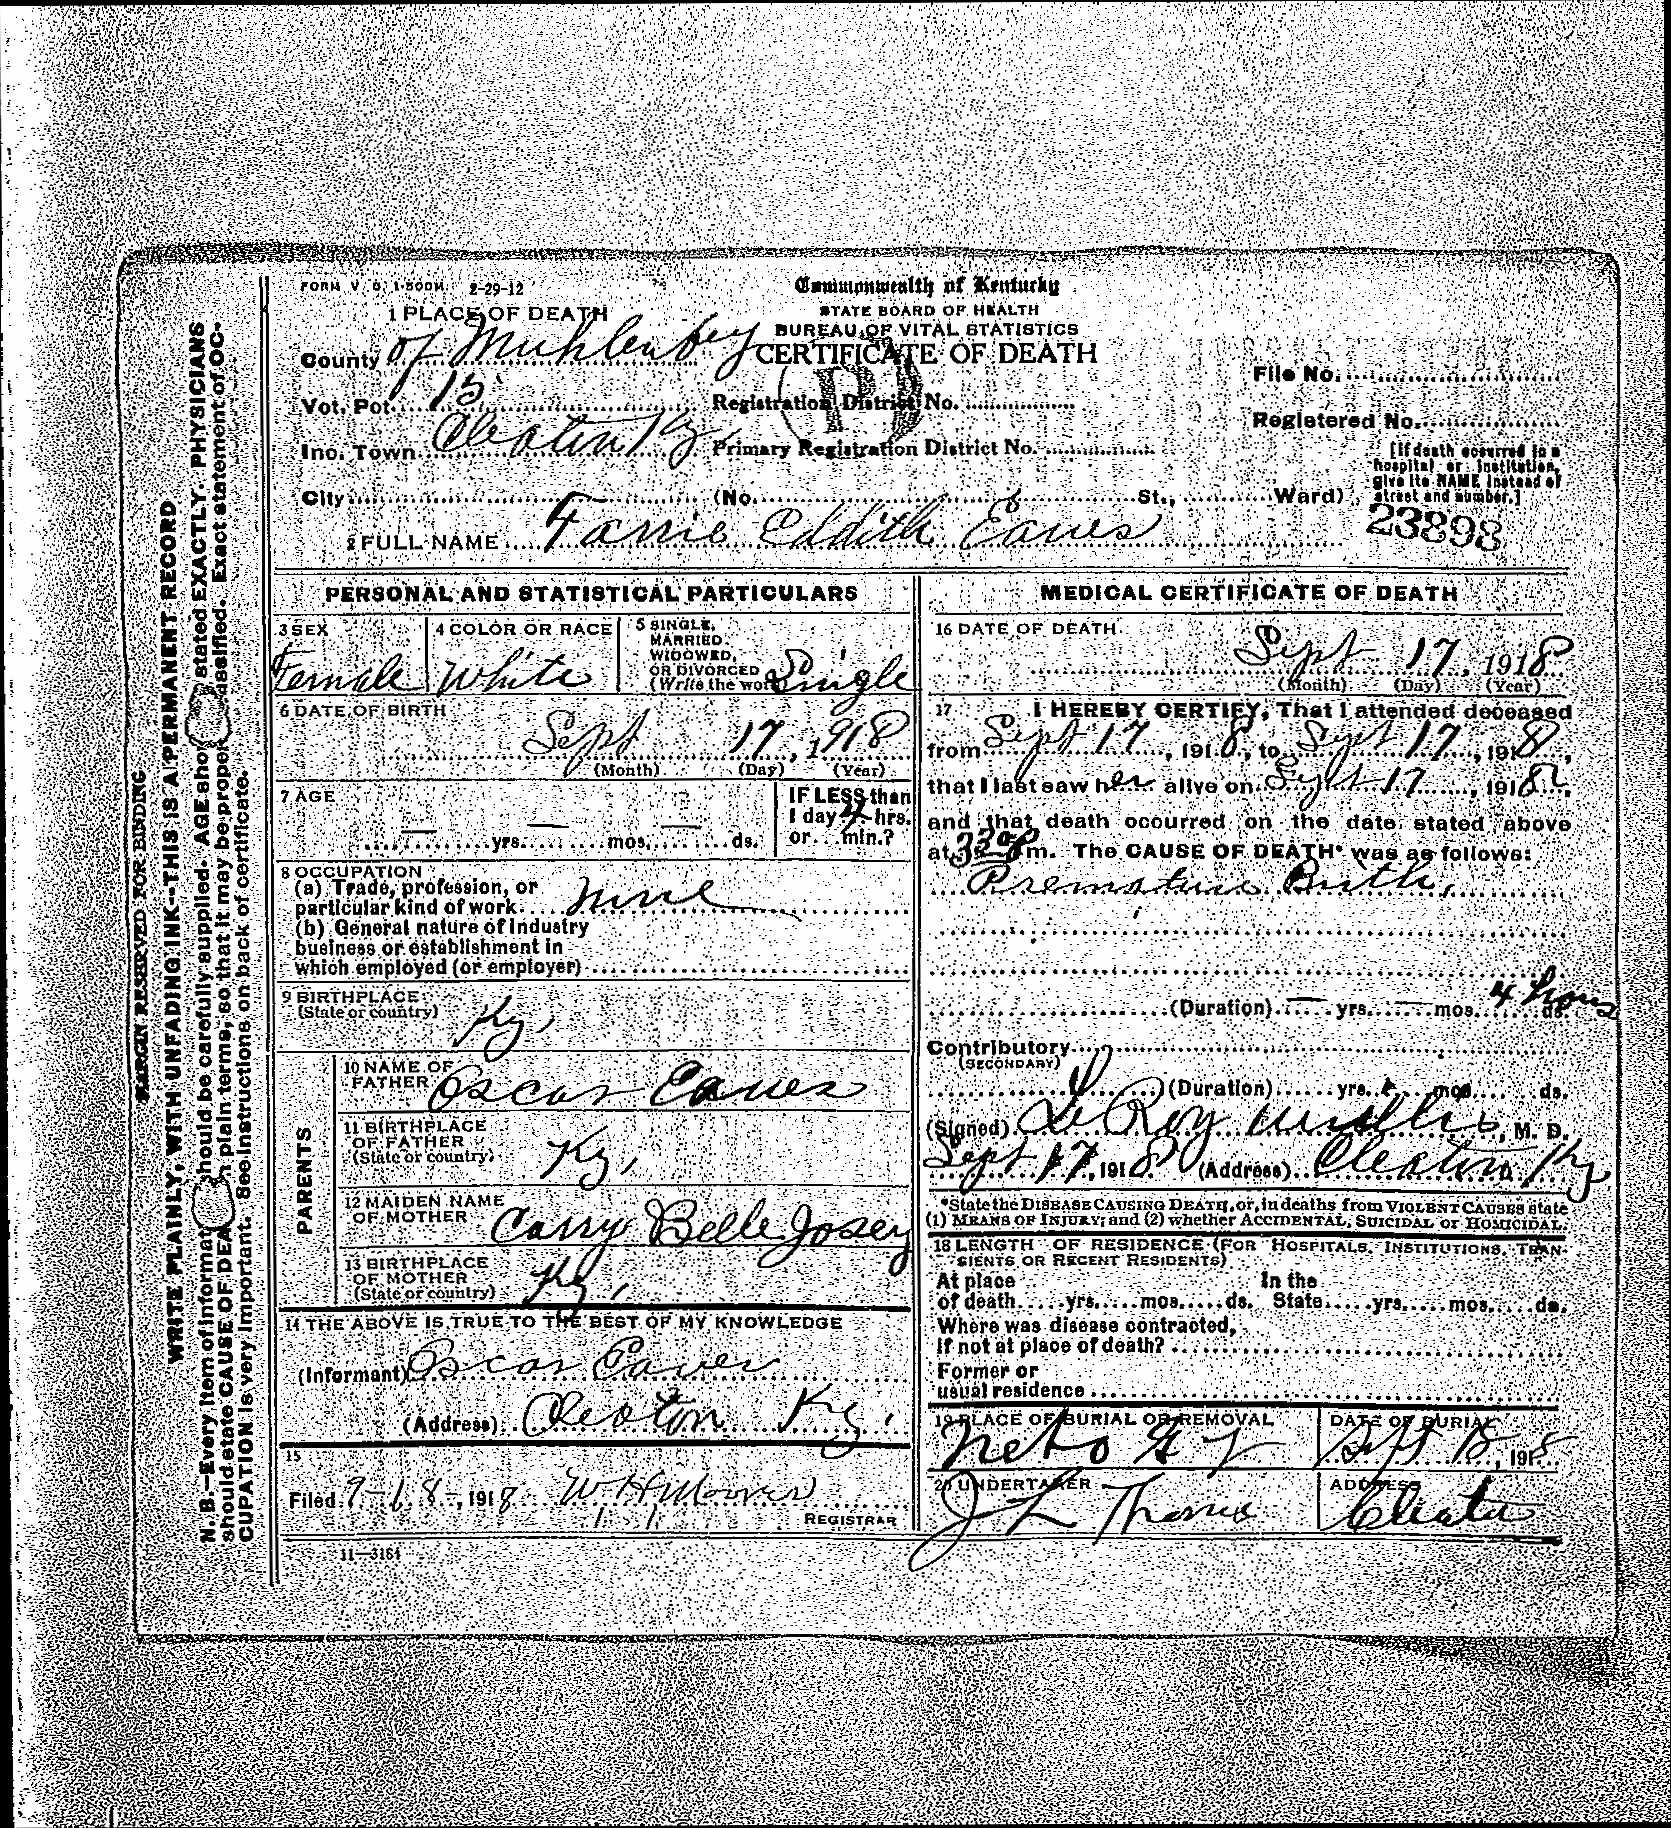 FORM V. S. 1-500M. 2-29-12
Commonwealth of Kentucky
STATE BOARD OF HEALTH
BUREAU OF VITAL STATISTICS
CERTIFICATE OF DEATH
1 PLACE OF DEATH
County of Muhlenberg
Vot. Pct. 15
Inc. Town Cleaton Ky
City (No. St., Ward)
Registration District No.
Primary Registration District No.
File No.
Registered No.
[If death occurred in a
hospital or institution,
give its NAME instead of
street and number.]
23898
2 FULL NAME Fannie Eddith Eaves
PERSONAL AND STATISTICAL PARTICULARS
3 SEX
Female
4 COLOR OR RACE
White
5 SINGLE,
MARRIED,
WIDOWED,
OR DIVORCED
(Write the word) Single
6 DATE OF BIRTH
Sept 17, 1918
(Month) (Day) (Year)
7 AGE
— yrs. — mos. — ds.
IF LESS than
1 day 4 hrs.
or min.?
8 OCCUPATION
(a) Trade, profession, or
particular kind of work none
(b) General nature of industry
business or establishment in
which employed (or employer)
9 BIRTHPLACE
(State or country)
Ky,
PARENTS
10 NAME OF
FATHER Oscar Eaves
11 BIRTHPLACE
OF FATHER
(State or country)
Ky,
12 MAIDEN NAME
OF MOTHER Carry Belle Josey
13 BIRTHPLACE
OF MOTHER
(State or country)
Ky,
14 THE ABOVE IS TRUE TO THE BEST OF MY KNOWLEDGE
(Informant) Oscar Eaves
(Address) Cleaton Ky,
15
Filed 9-18-, 1918 W H Moores
REGISTRAR
11—3164
MEDICAL CERTIFICATE OF DEATH
16 DATE OF DEATH
Sept 17, 1918
(Month) (Day) (Year)
17 I HEREBY CERTIFY, That I attended deceased
from Sept 17, 1918, to Sept 17, 1918,
that I last saw her alive on Sept 17, 1918,
and that death occurred on the date stated above
at 3 30 P m. The CAUSE OF DEATH* was as follows:
Premature Birth,
(Duration) — yrs. — mos. 4 hours ds.
Contributory
(SECONDARY)
(Duration) yrs. mos. ds.
(Signed) LeRoy Willis, M. D.
Sept 17, 1918 (Address) Cleaton Ky
*State the DISEASE CAUSING DEATH, or, in deaths from VIOLENT CAUSES state
(1) MEANS OF INJURY; and (2) whether ACCIDENTAL, SUICIDAL or HOMICIDAL.
18 LENGTH OF RESIDENCE (FOR HOSPITALS, INSTITUTIONS, TRAN-
SIENTS OR RECENT RESIDENTS)
At place In the
of death yrs. mos. ds. State yrs. mos. ds.
Where was disease contracted,
If not at place of death?
Former or
usual residence
19 PLACE OF BURIAL OR REMOVAL
Nebo
DATE OF BURIAL
Sept 18, 1918
20 UNDERTAKER
J L Thomas
ADDRESS
Cleaton
MARGIN RESERVED FOR BINDING
WRITE PLAINLY, WITH UNFADING INK--THIS IS A PERMANENT RECORD
N. B.—Every item of information should be carefully supplied. AGE should be stated EXACTLY. PHYSICIANS
should state CAUSE OF DEATH in plain terms, so that it may be properly classified. Exact statement of OC-
CUPATION is very important. See instructions on back of certificate.